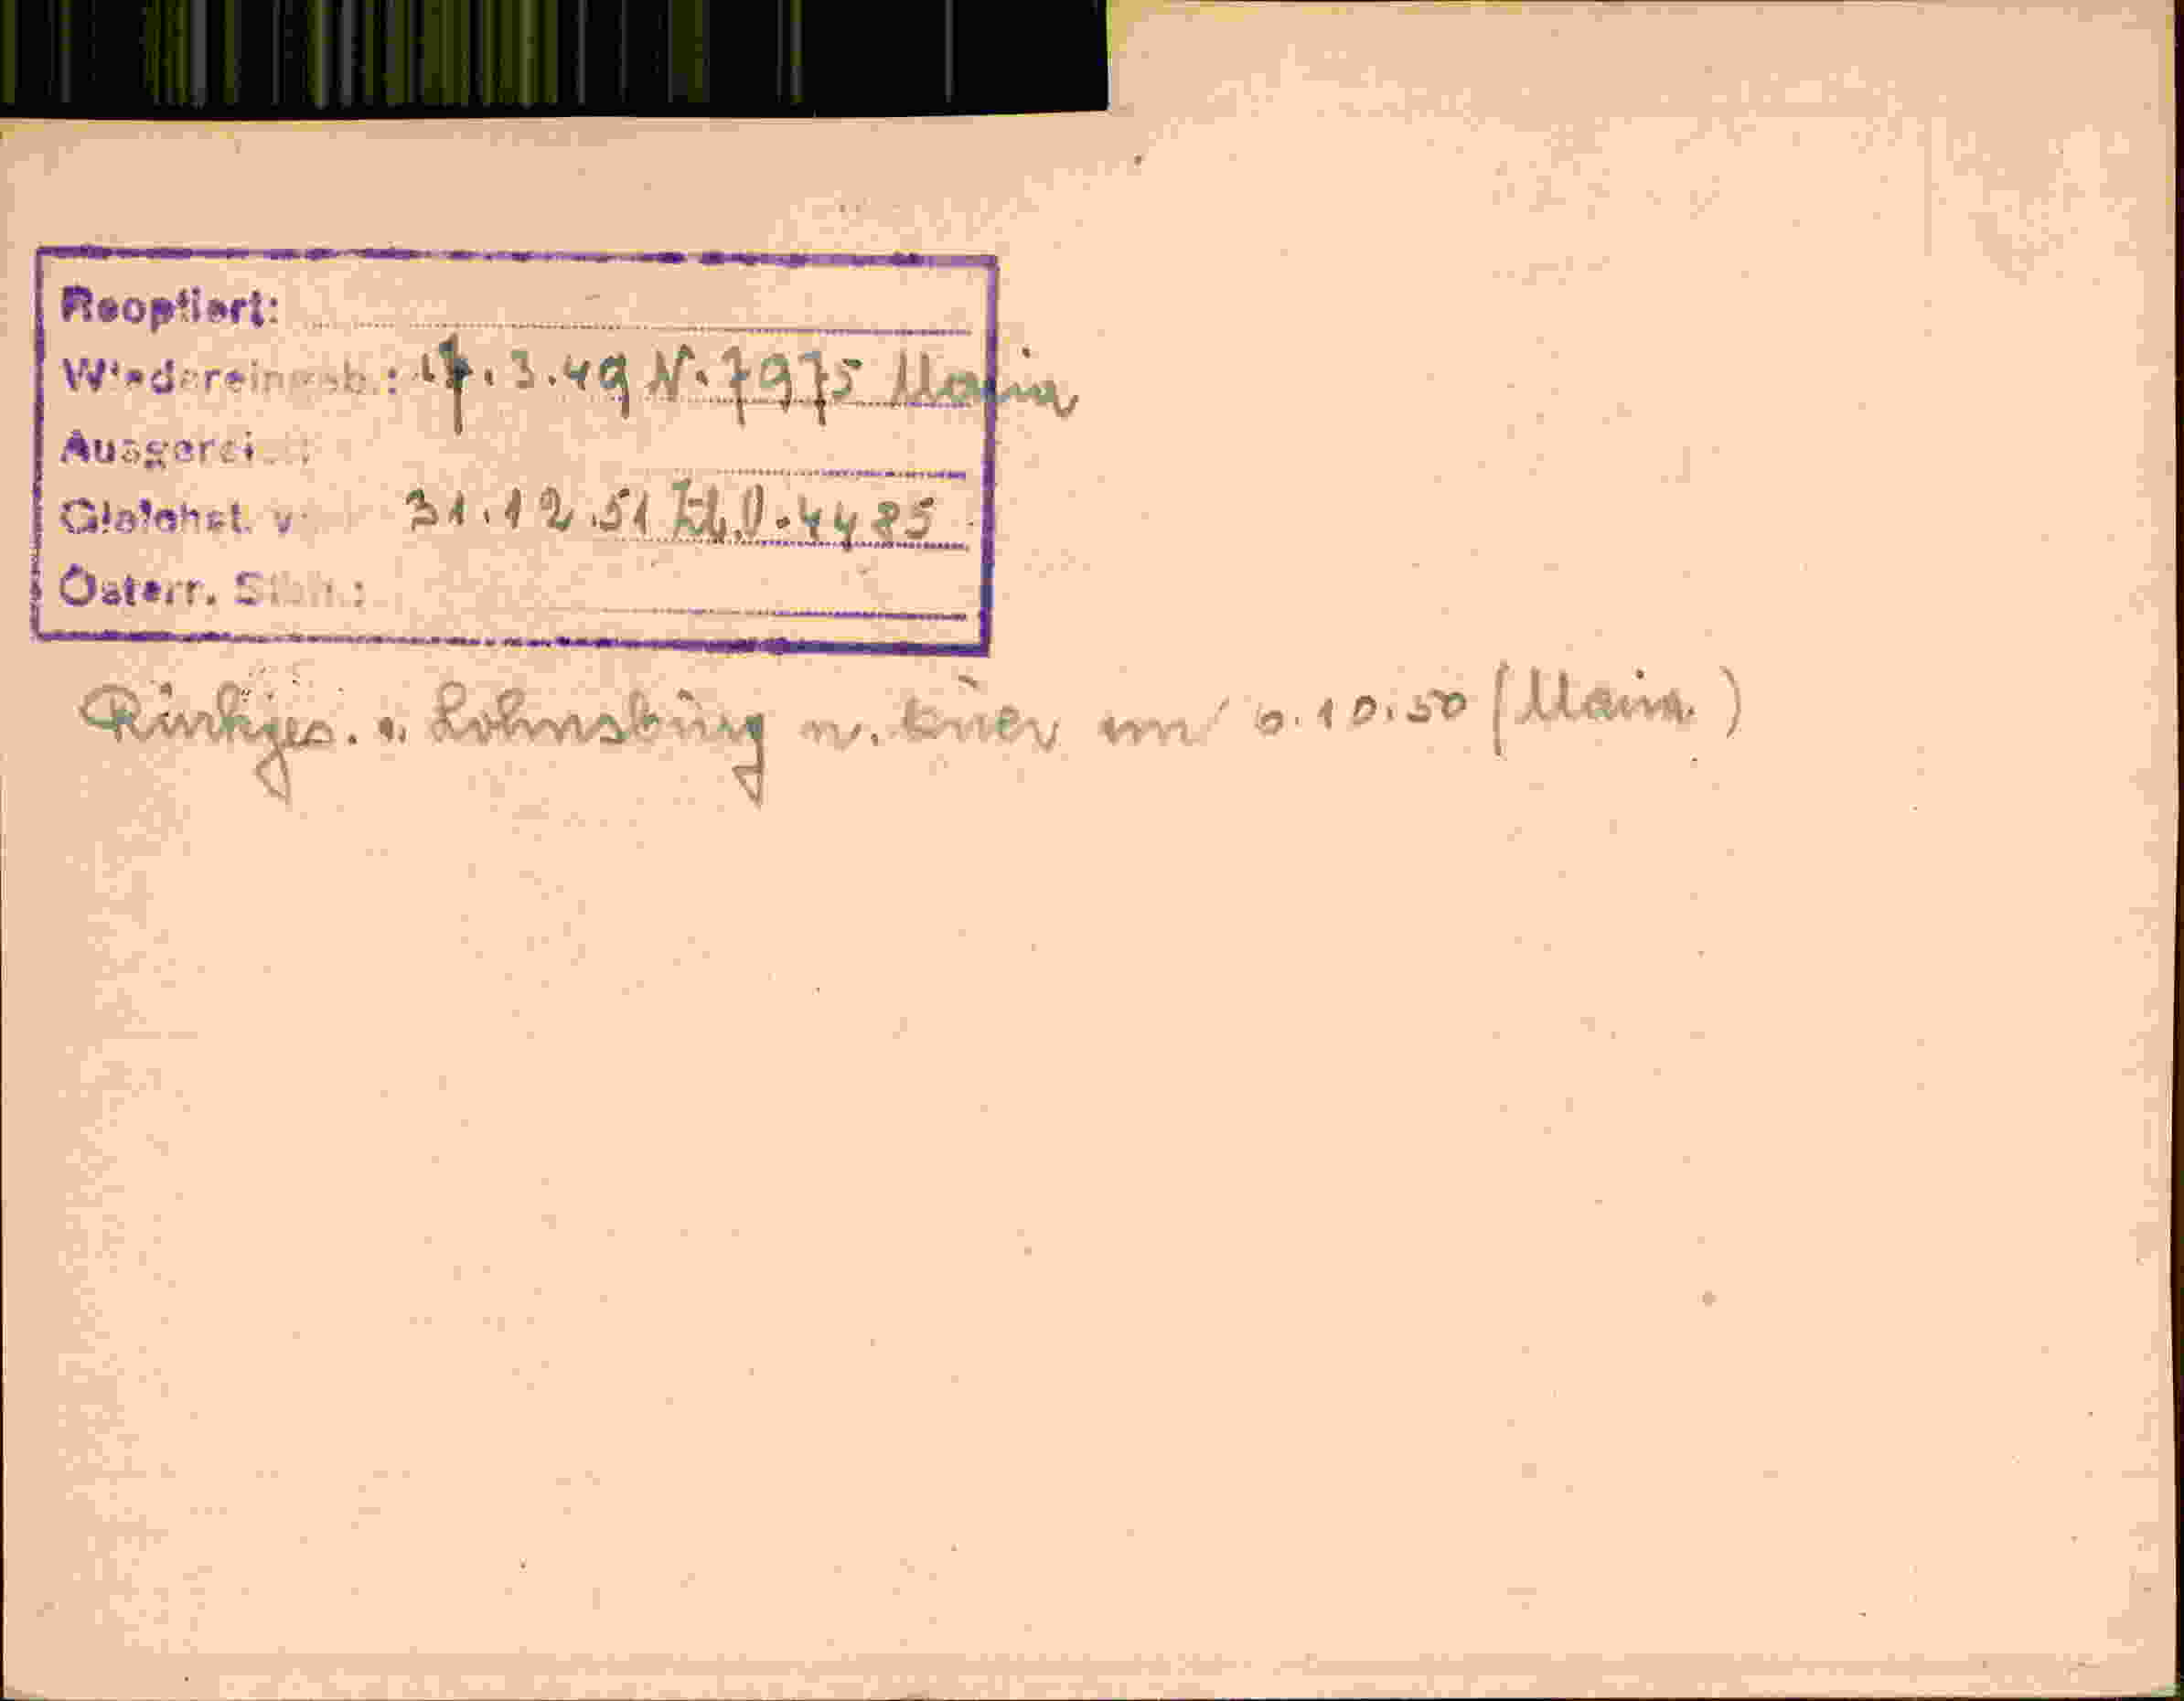 Reoptiert:
Wiedereingeb.: 17.3.49 N. 7975 Main
Ausgereist:
Gleichst. v: 31.12.51 Zl. 0. 4485
Österr. Stbh.:
Rückges. v. Lohnsburg n. am 6.10.50 (Main.)